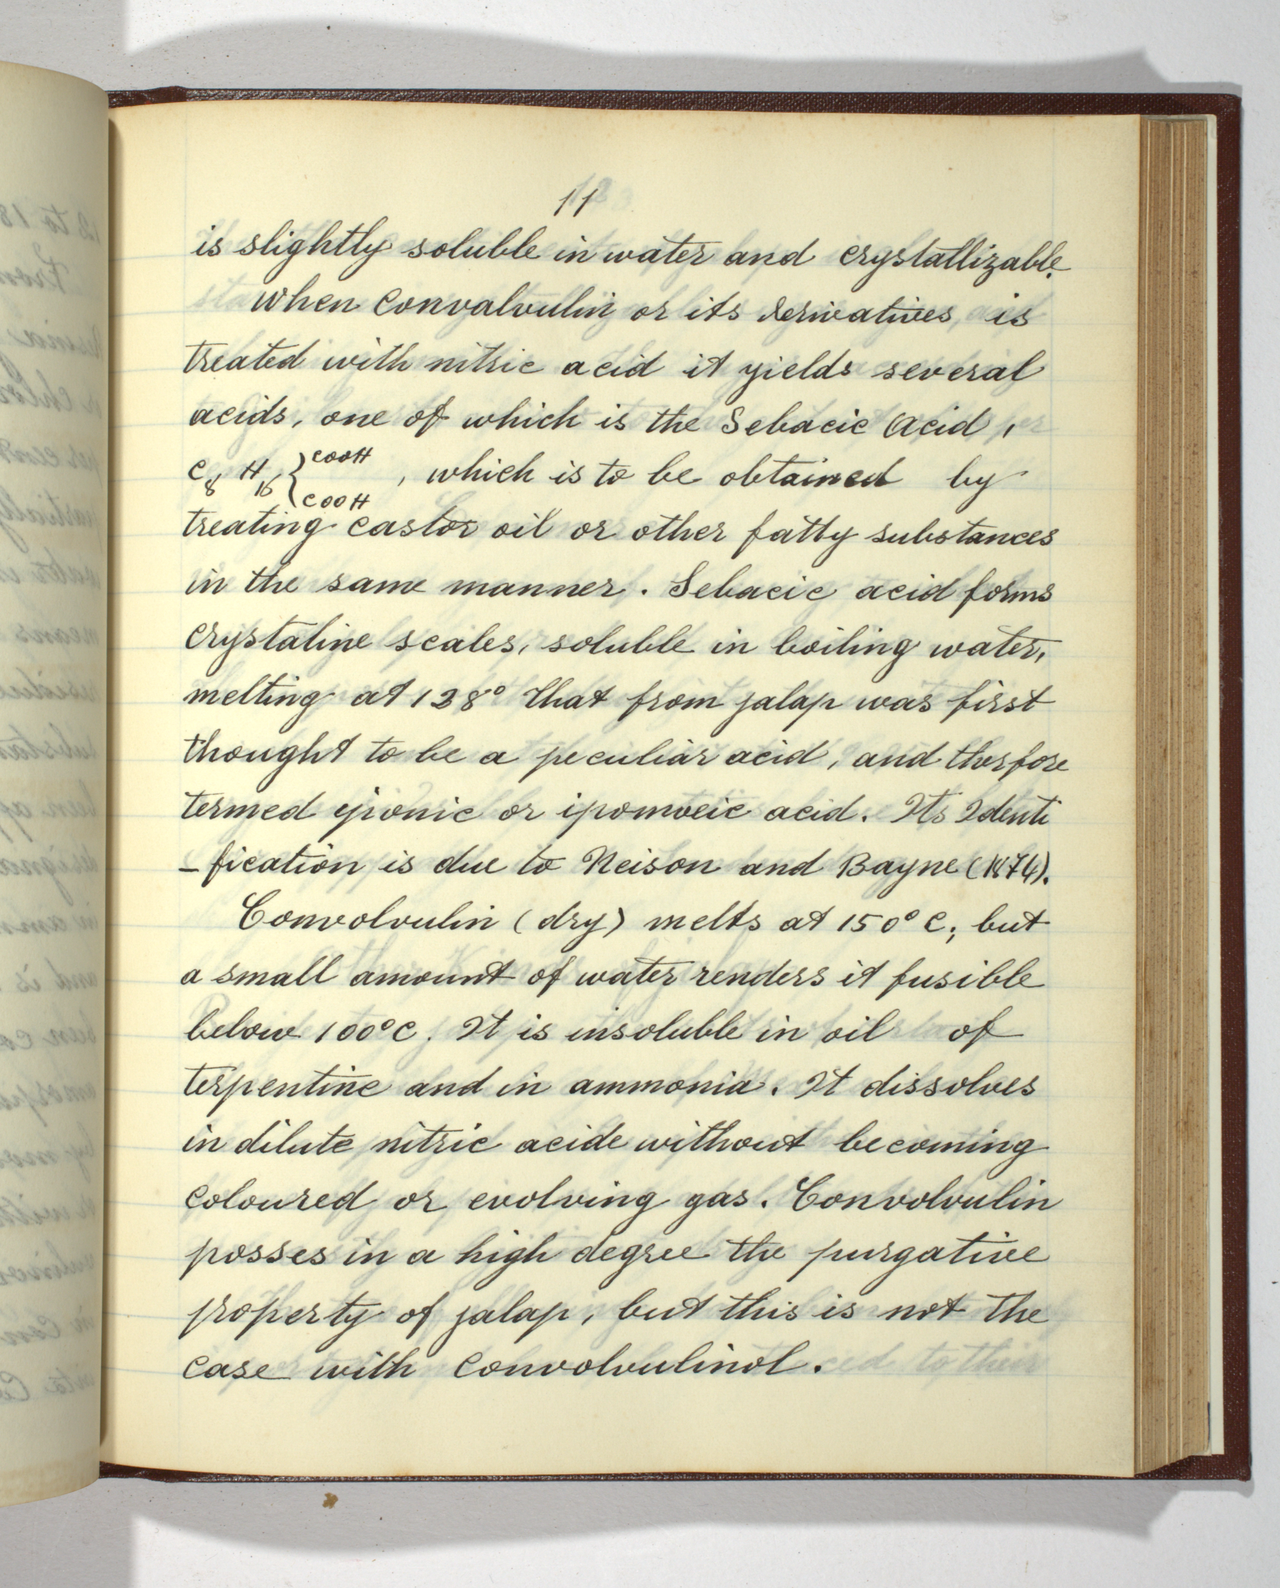 11
is slightly soluble in water and crystallizable.
When Convalvulin or its derivatives, is
treated with nitric acid it yields several
acids, one of which is the Sebacic Acid,
C8 H16 { COOH COOH , which is to be obtained by
treating castor oil or other fatty substances
in the same manner. Sebacic acid forms
crystaline scales, soluble in boiling water,
melting at 128° that from jalap was first
thought to be a peculiar acid, and therfore
termed iponic or ipomoeic acid. Its Identi
-fication is due to Neison and Bayne (1874).
Convolvulin (dry) melts at 150° C; but
a small amount of water renders it fusible
below 100°C. It is insoluble in oil of
terpentine and in ammonia. It dissolves
in dilute nitric acide without becoming
coloured or evolving gas. Convolvulin
posses in a high degree the purgative
property of jalap, but this is not the
case with convolvulinol.